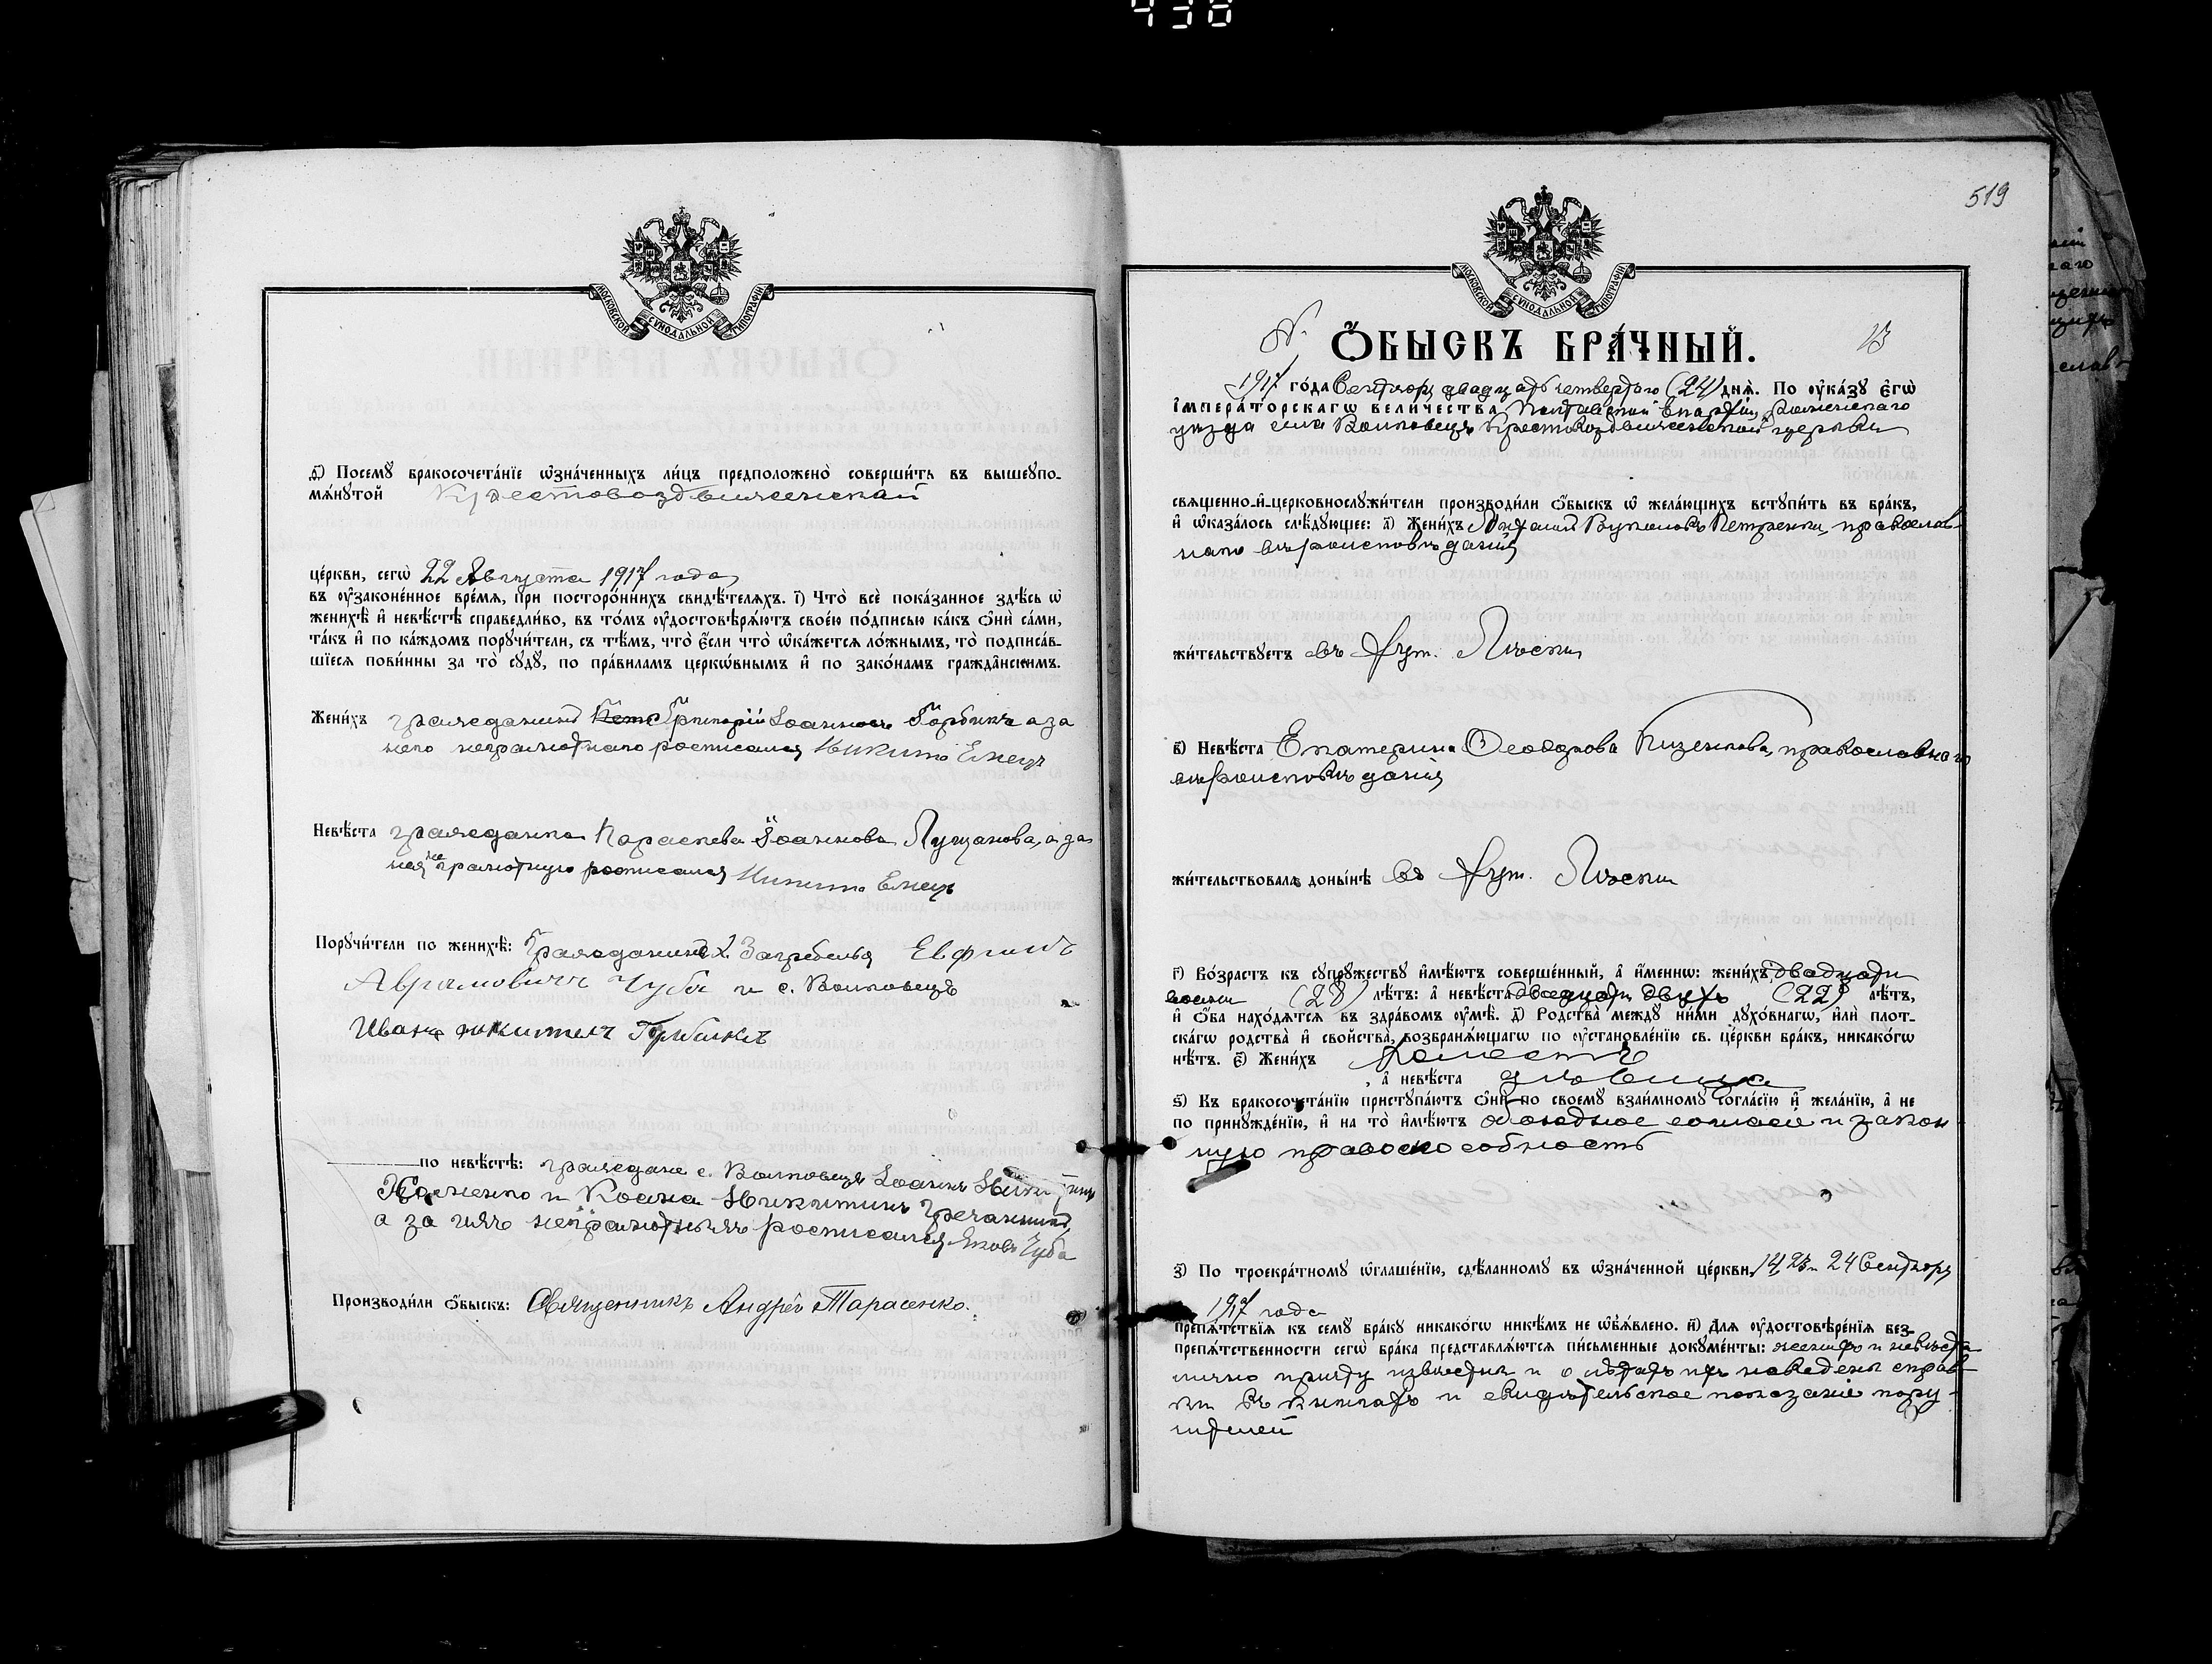 438
МОСКОВСКОЙ СѴНОДАЛЬНОЙ ТИПОГРАФІИ
ѳ҃) Посемꙋ̀ бракосочета́нїе ѡ҆зна́ченныхъ ли́цъ предположено̀ соверши́ть въ вышеꙋпо-
мѧ́нꙋтой Крестовоздвиженской
це́ркви, сегѡ̀ 22 Августа 1917 года
въ ᲂу҆законе́нное вре́мѧ, при посторо́ннихъ свидѣ́телѧхъ. і҃) Что̀ всѐ пока́занное здѣ́сь ѡ҆
женихѣ̀ и҆ невѣ́стѣ справедли́во, въ то́мъ ᲂу҆достовѣрѧ́ютъ свое́ю по́дписью ка́къ ѻ҆нѝ са́ми,
та́къ и҆ по ка́ждомъ порꙋчи́тели, съ тѣ́мъ, что̀ є҆́сли что̀ ѡ҆ка́жетсѧ ло́жнымъ, то̀ подписа́в-
шїесѧ пови́нны за то̀ сꙋдꙋ̀, по пра́виламъ церко́внымъ и҆ по зако́намъ гражда́нскимъ.
Жени́хъ гражданинъ Григорій Іоанновъ Горбикъ а за
него неграмотнаго росписался Никита Емецъ
Невѣ́ста гражданка Параскева Іоаннова Луцанова, а за
нея неграмотную росписался Никита Емецъ
Порꙋчи́тели по женихѣ̀: Гражданинъ х. Загребелья Евфимъ
Аврамовичъ Чуба и с. Волковецъ
Иванъ Никитенъ
по невѣ́стѣ: граждане с. Волковецъ Іоаннъ
и Косма Никитинъ Гречанинъ,
а за нихъ неграмотныхъ росписался Яковъ Чуба
Производи́ли ѻ҆́быскъ: Священникъ Андрей Тарасенко.
519
МОСКОВСКОЙ СѴНОДАЛЬНОЙ ТИПОГРАФІИ
№ Ѻ҆́БЫСКЪ БРА́ЧНЫЙ. 13
1917 го́да Сентября двадцать четвертаго (24) днѧ̀. По ᲂу҆ка́зꙋ є҆гѡ̀
і҆мпера́торскагѡ вели́чества Полтавской Епархіи, Роменскаго
уѣзда села Волковецъ Крестовоздвиженской церкви
свѧщенно-и҆-церковнослꙋжи́тели производи́ли ѻ҆́быскъ ѡ҆ жела́ющихъ встꙋпи́ть въ бра́къ,
и҆ ѡ҆каза́лось слѣ́дꙋющее: а҃) Жени́хъ Петренко, православ-
наго вѣроисповѣданія
жи́тельствꙋетъ въ хут. Лиски
в҃) Невѣ́ста Екатерина Ѳеодорова православнаго
вѣроисповѣданія
жи́тельствовала доны́нѣ въ хут. Лиски
г҃) Во́зрастъ къ сꙋпрꙋ́жествꙋ и҆мѣ́ютъ соверше́нный, а҆ и҆́меннѡ: жени́хъ двадцати
восьми (28) лѣ́тъ: а҆ невѣ́ста двадцати двухъ (22) лѣ́тъ,
и҆ ѻ҆́ба нахо́дѧтсѧ въ здра́вомъ ᲂу҆мѣ̀. д҃) Родства̀ междꙋ ни́ми дꙋхо́внагѡ, и҆лѝ плот-
ска́гѡ родства̀ и҆ сво́йства, возбранѧ́ющагѡ по ᲂу҆становле́нїю св. це́ркви бра́къ, никако́гѡ
нѣ́тъ. є҃) Жени́хъ холостъ
, а҆ невѣ́ста дѣвица
ѕ҃) Къ бракосочета́нїю пристꙋпа́ютъ ѻ҆нѝ по своемꙋ̀ взаи́мномꙋ согла́сїю и҆ жела́нїю, а҆ не
по принꙋжде́нїю, и҆ на то̀ и҆мѣ́ютъ обоюдное согласіе и закон-
ную правоспособность
з҃) По троекра́тномꙋ ѡ҆глаше́нїю, сдѣ́ланномꙋ въ ѡ҆зна́ченной це́ркви, 14, 23 и 24 Сентября
1917 года
препѧ́тствїѧ къ семꙋ̀ бра́кꙋ никако́гѡ никѣ́мъ не ѡ҆б̾ѧ́влено. и҃) Для ᲂу҆достовѣре́нїѧ без-
препѧ́тственности сегѡ̀ бра́ка представлѧ́ютсѧ пи́сьменные докꙋме́нты: женихъ и невѣста
лично причту извѣстны и о лѣтахъ ихъ наведены справ-
ки въ книгахъ и свидѣтельское показаніе пору-
чителей